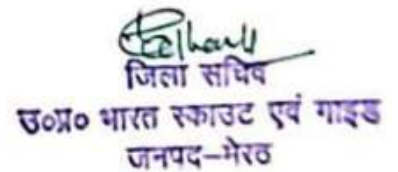 जिला सचिव
उ०प्र० भारत स्काउट एवं गाइड
जनपद-मेरठ